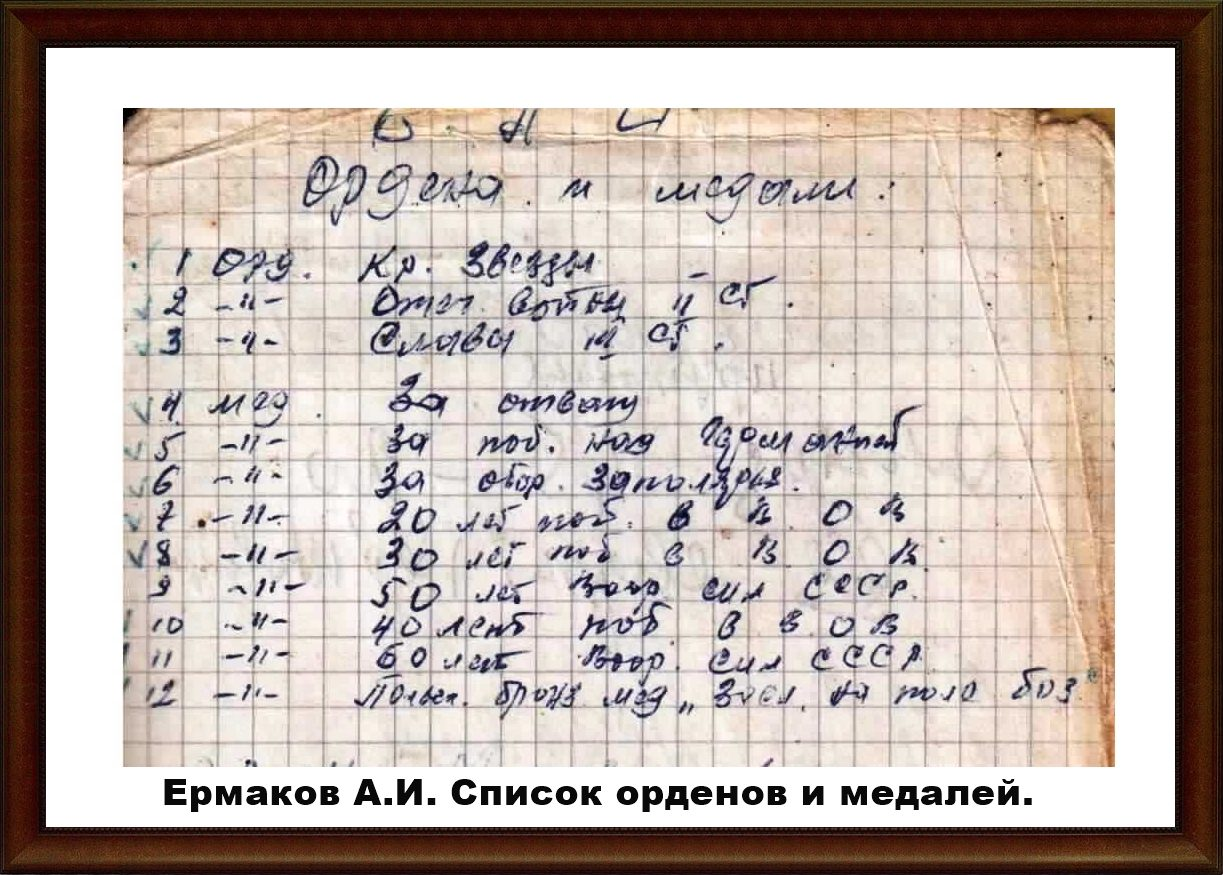 Ордена и медали:
1 Орд. Кр. Звезды
2 -"- Отеч. войны II ст.
3 -"- Славы III ст.
4 мед. За отвагу
5 -"- За поб. над Германией
6 -"- За обор. Заполярья.
7 -"- 20 лет поб. в В О В
8 -"- 30 лет поб в В О В.
9 -"- 50 лет Воор сил СССР.
10 -"- 40 лет поб в В О В
11 -"- 60 лет Воор. сил СССР.
12 -"- Польск. бронз. мед „ Засл. на поле
Ермаков А.И. Список орденов и медалей.